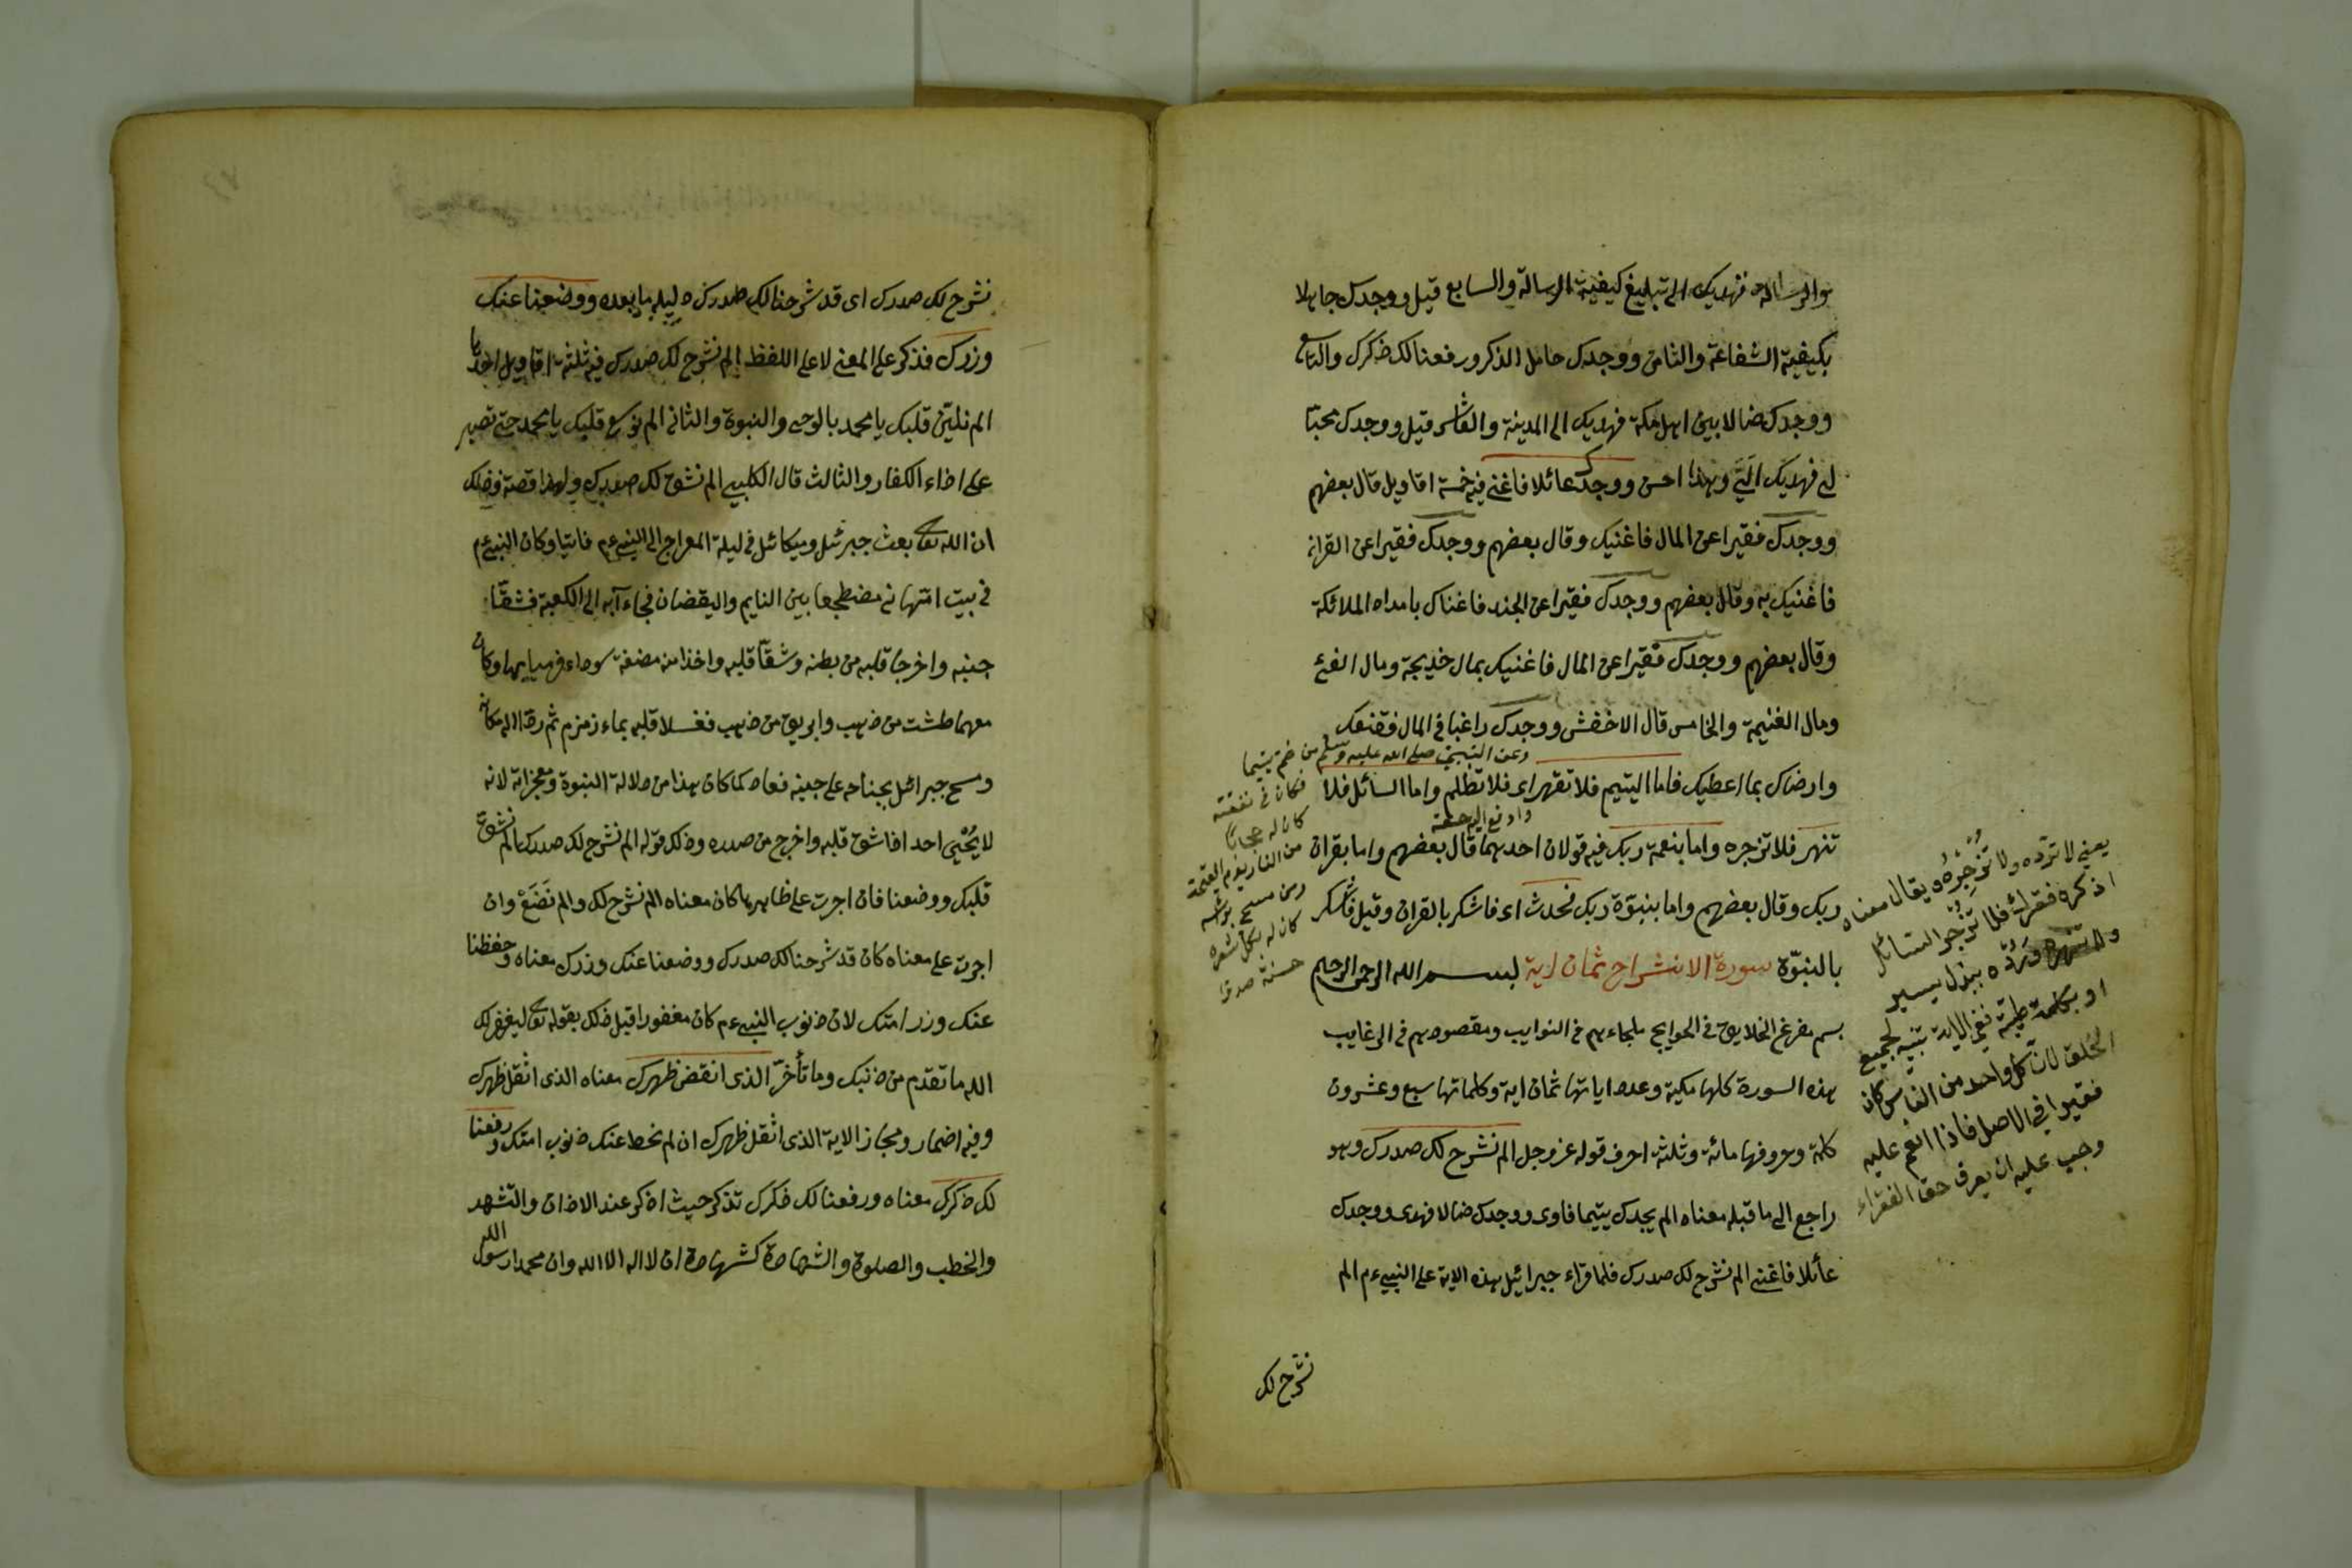 والرسالة فهديك الى تبليغ كيفية الرسالة والسابع قيل ووجدك جاهلا
بكيفية الشفاعة والثامن ووجدك حامل الذكر ورفعنا لك ذكرك والتاسع
ووجدك ضالا بين اهل مكة فهديك الى المدينة والعاشر قيل ووجدك محبتا
لى فهديك الىّ وهذا احسن ووجدك عائلا فاغنى فيه خمسة اقاويل قال بعضهم
ووجدك فقيرا عن المال فاغنيك وقال بعضهم ووجدك فقيرا عن القران
فاغنيك به وقال بعضهم ووجدك فقيرا عن الجند فاغناك بامداد الملائكة
وقال بعضهم ووجدك فقيرا عن المال فاغنيك بمال خديجة ومال الفئ
ومال الغنيمة والخامس قال الاخفش ووجدك راغبا فى المال فقنعك
وارضاك بما اعطيك فاما اليتيم فلا تقهر اى فلا تظلم واما السائل فلا
تنهر فلا تزجره واما بنعمة ربك فيه قولان احدهما قال بعضهم واما بقران
ربك وقال بعضهم واما بنبوّة ربك فحدث اى فاشكر بالقران وقيل فاشكر
بالنبوّة سورة الانشراح ثمان اية بسم الله الرحمن الرحيم
بسم مفزغ الخلايق فى الحوايج ملجاءهم فى النوايب ومقصودهم فى الرغايب
هذه السورة كلها مكية وعدد اياتها ثمان اية وكلماتها سبع وعشرون
كلمة وحروفها مائة وثلثة احرف قوله عز وجل الم نشرح لك صدرك وهو
راجع الى ما قبله معناه الم يجدك يتيما فاوى ووجدك ضالا فهدى ووجدك
عائلا فاغنى الم نشرح لك صدرك فلما قراء جبرائيل هذه الاية على النبىء م الم
نشرح لك
وعن النبى صلى الله عليه وسلم من ضم يتيما
فكان فى نفقته
كان له حجابا
من النار يوم القيمة
ومن مسح برأسه
كان له بكل شعرة
حسنة
يعنى لا تردّه ولا تَزْجُرْهُ ويقال معناه
اذكره فقرك فلا تزجر السائل
ولا تنهره وردّه ببذل يسير
او بكلمة طيبة ففى الاية تنبيه لجميع
الخلق لان كل واحد من الناس كان
فقيرا فى الاصل فاذا انعم عليه
وجب عليه ان يعرف حق الفقراء
نشرح لك صدرك اى قد شرحنا لك صدرك دليله ما بعده ووضعنا عنك
وزرك فذكر على المعنى لا على اللفظ الم نشرح لك صدرك فيه ثلثة اقاويل احدها
الم نليّن قلبك يا محمد بالوحى والنبوة والثانى الم نوسع قلبك يا محمد حتى تصبر
على اذاء الكفار والثالث قال الكلبى الم نشق لك صدرك ولهذا قصة وذلك
ان الله تعالى بعث جبرئيل وميكائل فى ليلة المعراج الى النبىء م فاتيا وكان النبىء م
فى بيت امّهانى مضطجعا بين النايم واليقضان فجاءابه الى الكعبة فشقّا
جنبه واخرجا قلبه من بطنه وشقّا قلبه واخذا من مضغة سوداء فرمياها وكان
معهما طشت من ذهب وابريق من ذهب فغسلا قلبه بماء زمزم ثم ردّا الى مكانه
ومسح جبرائل بجناحه على جنبه فعاد كما كان هذا من دلالة النبوة ومعجزاته لانه
لا يُحْيى احد اذا شق قلبه واخرج من صدره وذلك قوله الم نشرح لك صدرك الم نشق
قلبك ووضعنا فان اجرت على ظاهرها كان معناه الم نشرح لك والم نَضَعْ وان
اجرت على معناه كان قد شرحنا لك صدرك ووضعنا عنك وزرك معناه وحفظنا
عنك وزر امتك لان ذنوب النبىء م كان مغفورا قبل ذلك بقوله تعالى ليغفر لك
الله ما تقدم من ذنبك وما تأخرّ الذى انقض ظهرك معناه الذى اثقل ظهرك
وفيه اضمار ومجاز الاية الذى اثقل ظهرك ان لم نحط عنك ذنوب امتك ورفعنا
لك ذكرك معناه ورفعنا لك ذكرك تذكر حيث اذكر عند الاذان والتشهد
والخطب والصلوة والشهادة كشهادة ان لا اله الا الله وان محمدا رسول الله